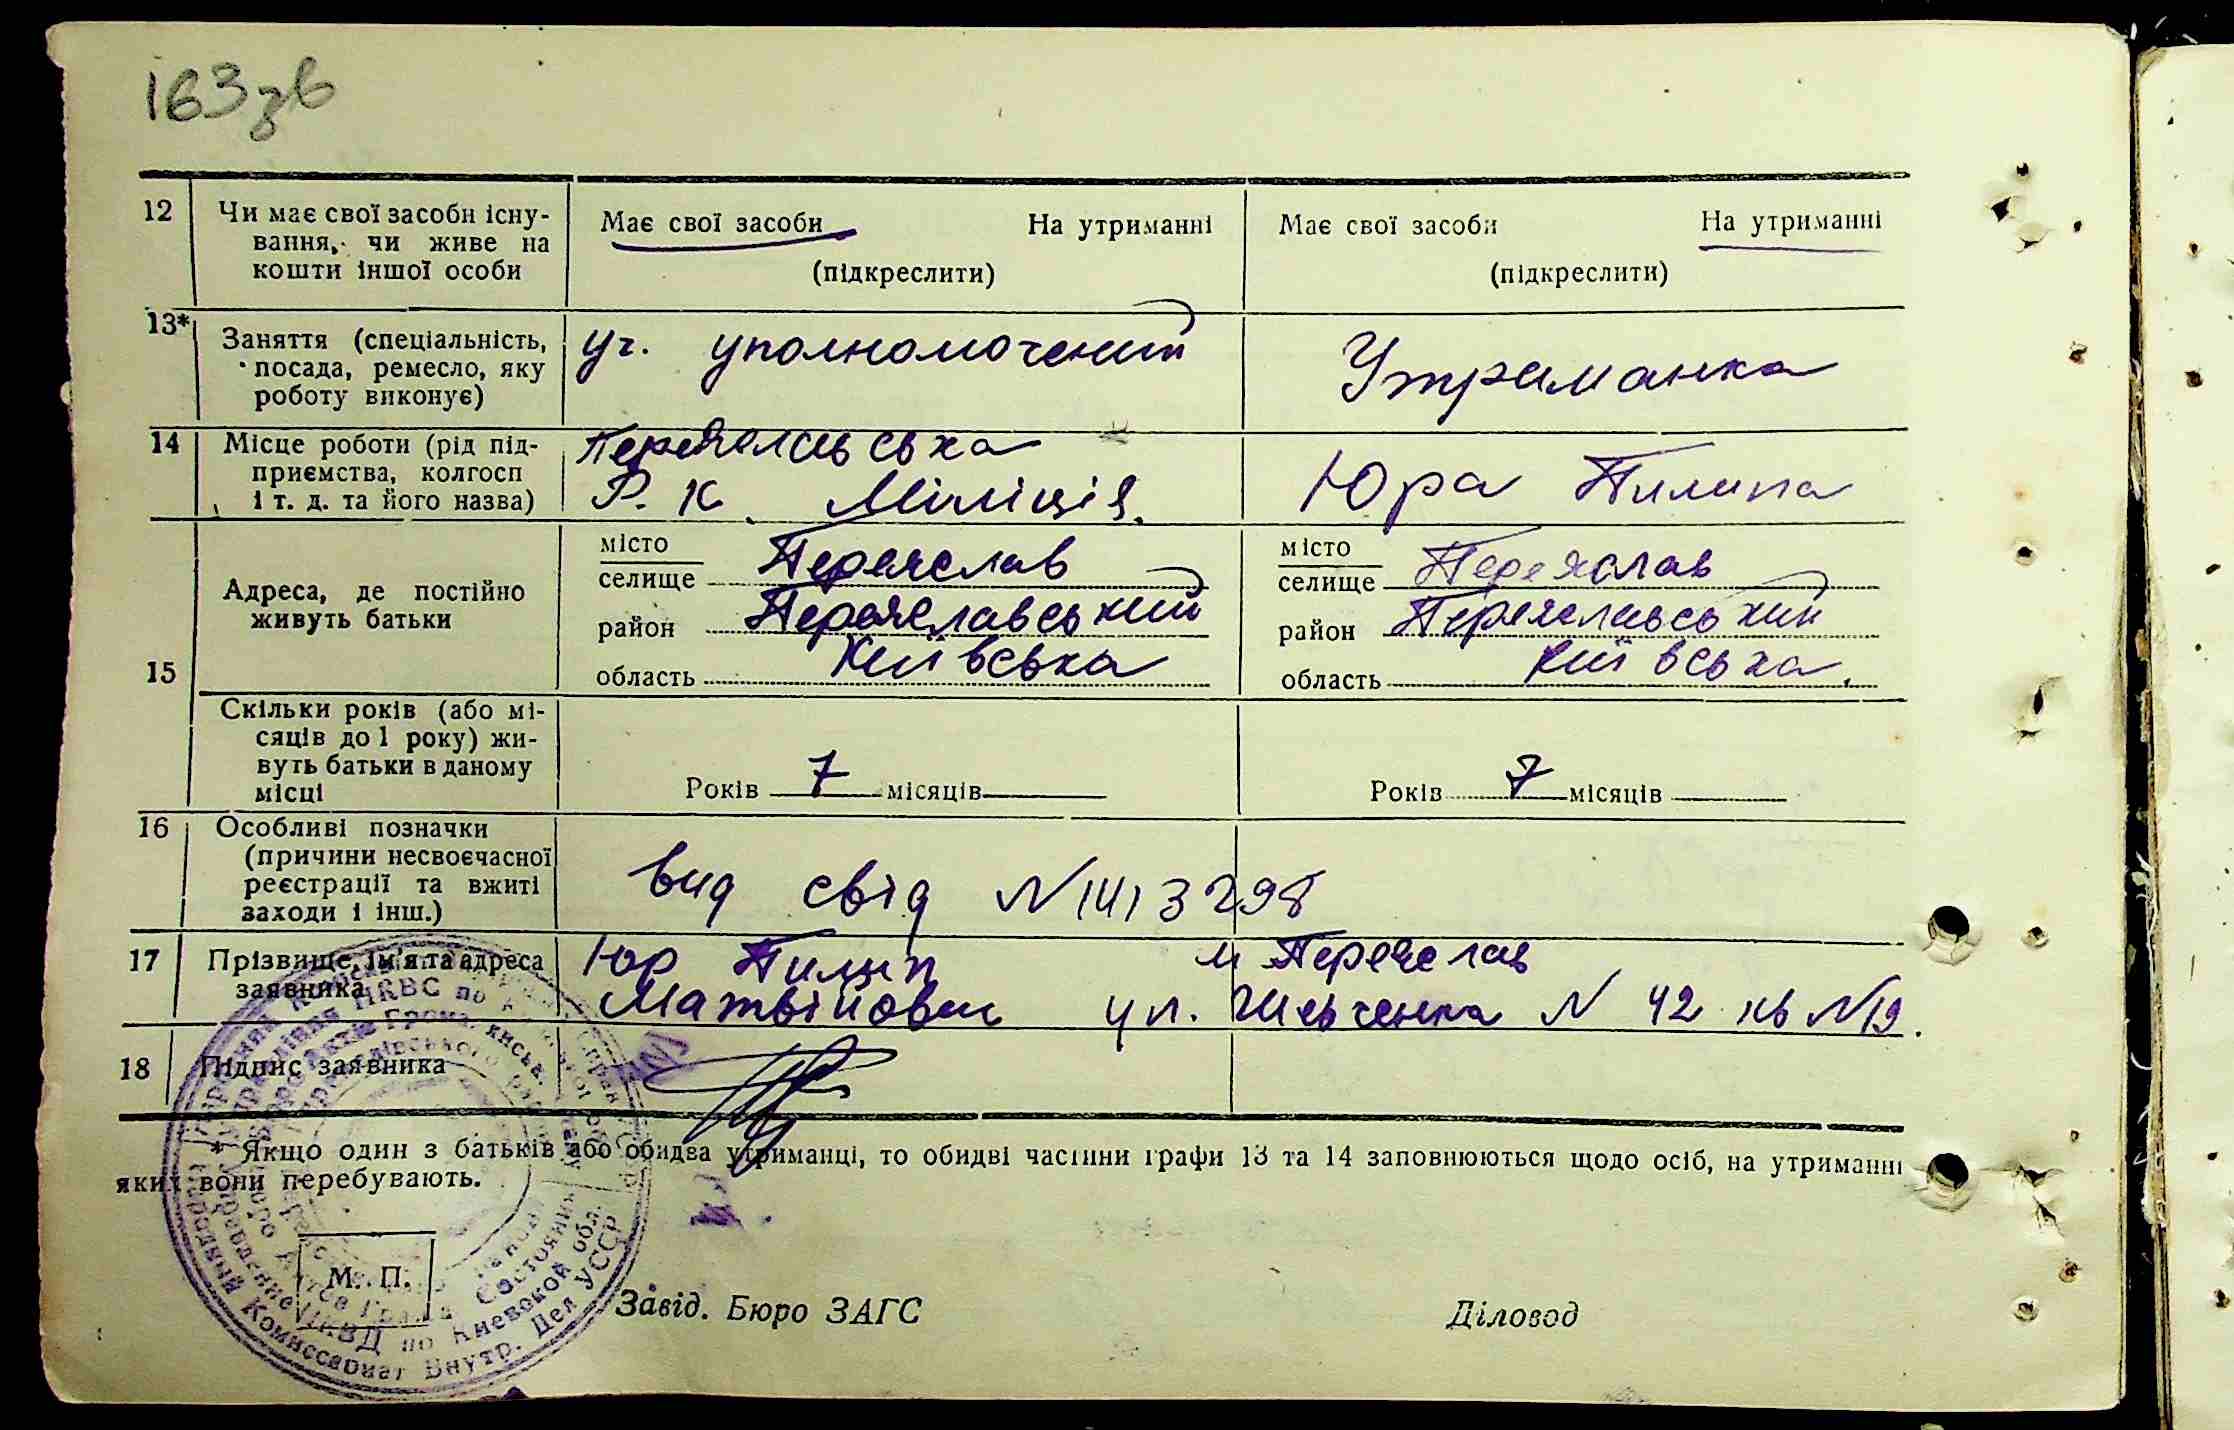 163 зв
12 Чи має свої засоби існу-
вання, чи живе на
кошти іншої особи
Має свої засоби На утриманні
(підкреслити)
Має свої засоби На утриманні
(підкреслити)
13* Заняття (спеціальність,
посада, ремесло, яку
роботу виконує)
уч. уполномочений
Утриманка
14 Місце роботи (рід під-
приємства, колгосп
і т. д. та його назва)
Переяславська
Р. К. Міліція.
Юра Пилипа
15 Адреса, де постійно
живуть батьки
місто
селище Переяслав
район Переяславський
область Київська
місто
селище Переяслав
район Переяславський
область Київська.
Скільки років (або мі-
сяців до 1 року) жи-
вуть батьки в даному
місці
Років 7 місяців
Років 7 місяців
16 Особливі позначки
(причини несвоєчасної
реєстрації та вжиті
заходи і інш.)
Вид свід N 1413298
17 Прізвище, ім'я та адреса
заявника
Юр Пилип м Переяслав
Матвійович ул. Шевченка N 42 кв N 19.
18 Підпис заявника
* Якщо один з батьків або обидва утриманці, то обидві частини графи 13 та 14 заповнюються щодо осіб, на утриманні
яких вони перебувають.
М. П.
Завід. Бюро ЗАГС Діловод
Комиссариат Внутр. Дел УССР
НКВД по Киевской обл.